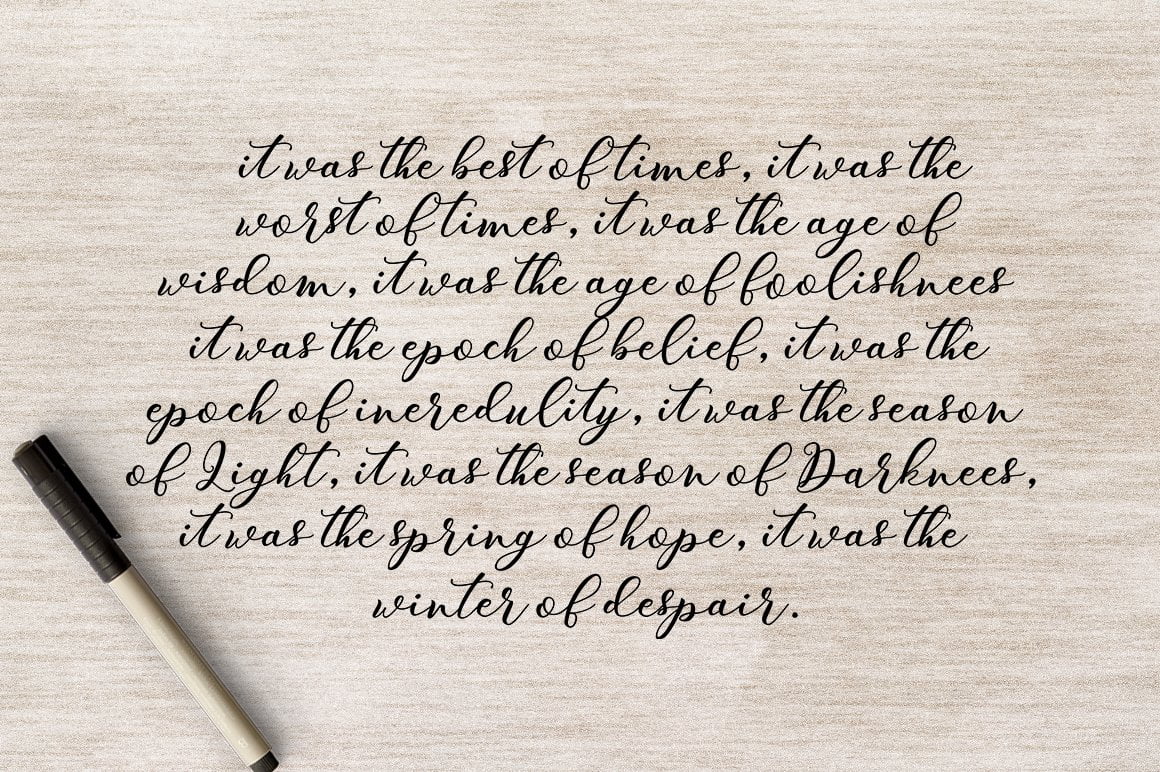 it was the best of times, it was the
worst of times, it was the age of
wisdom, it was the age of foolishnees
it was the epoch of belief, it was the
epoch of ineredulity, it was the season
of Light, it was the season of Darknees,
it was the spring of hope, it was the
winter of despair.